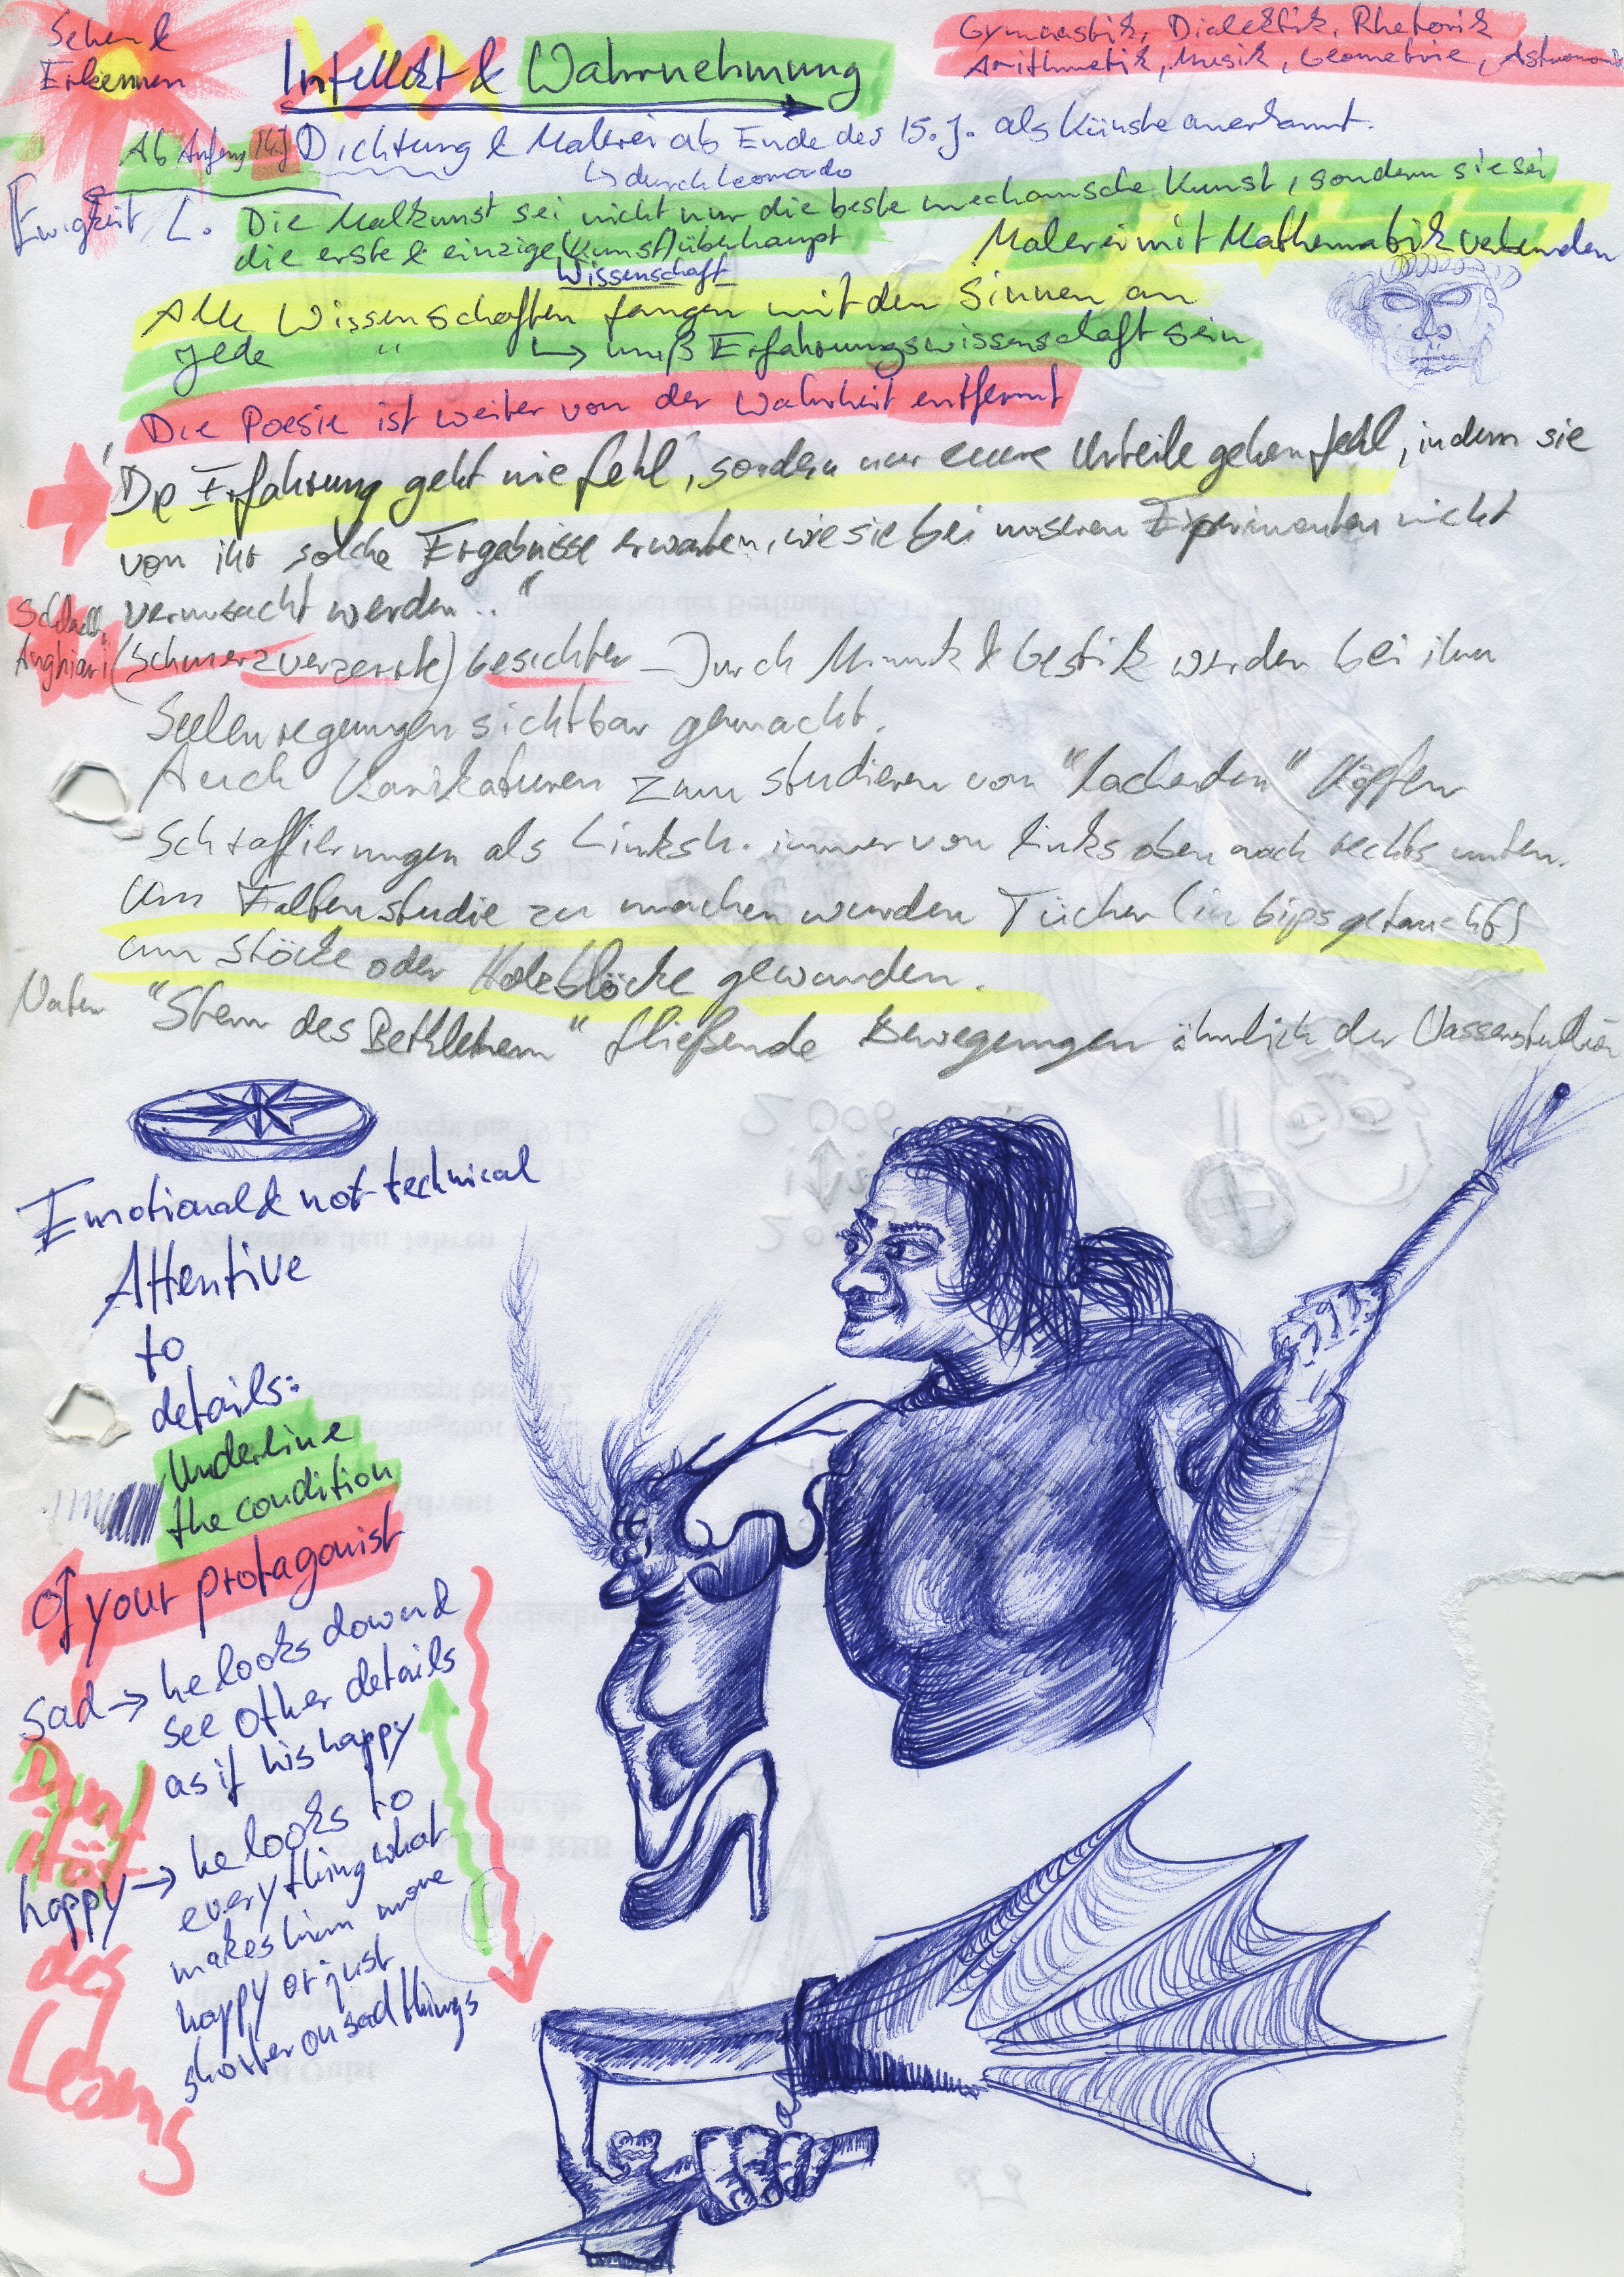 Sehen &
Erkennen
Intellekt & Wahrnehmung
Gymnastik, Dialektik, Rhetorik
Arithmetik, Musik, Geometrie, Astronomie
Ab Anfang
Dichtung & Malerei ab Ende des 15. J. als Künste anerkannt.
↳ durch Leonardo
Ewigkeit
L. Die Malkunst sei nicht nur die beste mechanische Kunst, sondern sie sei
die erste & einzige (Kunst) überhaupt
Wissenschaft
Malerei mit Mathematik verbinden
Alle Wissenschaften fangen mit den Sinnen an
Jede " ↳ muß Erfahrungswissenschaft sein
Die Poesie ist weiter von der Wahrheit entfernt
Die Erfahrung geht nie fehl, sondern nur eure Urteile gehen fehl, indem sie
von ihr solche Ergebnisse erwarten, wie sie bei unseren Experimenten nicht
verursacht werden.."
Schlacht
Anghiari
(Schmerzverzerrte) Gesichter – Durch Mimik & Gestik werden bei ihm
Seelenregungen sichtbar gemacht.
Auch Karikaturen zum studieren von "lachenden" Köpfen
Schraffierungen als Linksh. immer von links oben nach rechts unten.
Um Faltenstudie zu machen wurden Tücher (in Gips getaucht)
um Stöcke oder Holzblöcke gewunden.
"Stern des Bethlehem" fließende Bewegungen ähnlich der Wasserstudien
Emotional & not technical
Attentive
to
details:
Underline
the condition
of your protagonist
sad → he looks down &
see other details
as if his happy
happy → he looks to
everything what
makes him more
happy or just
shorter on sad things
des